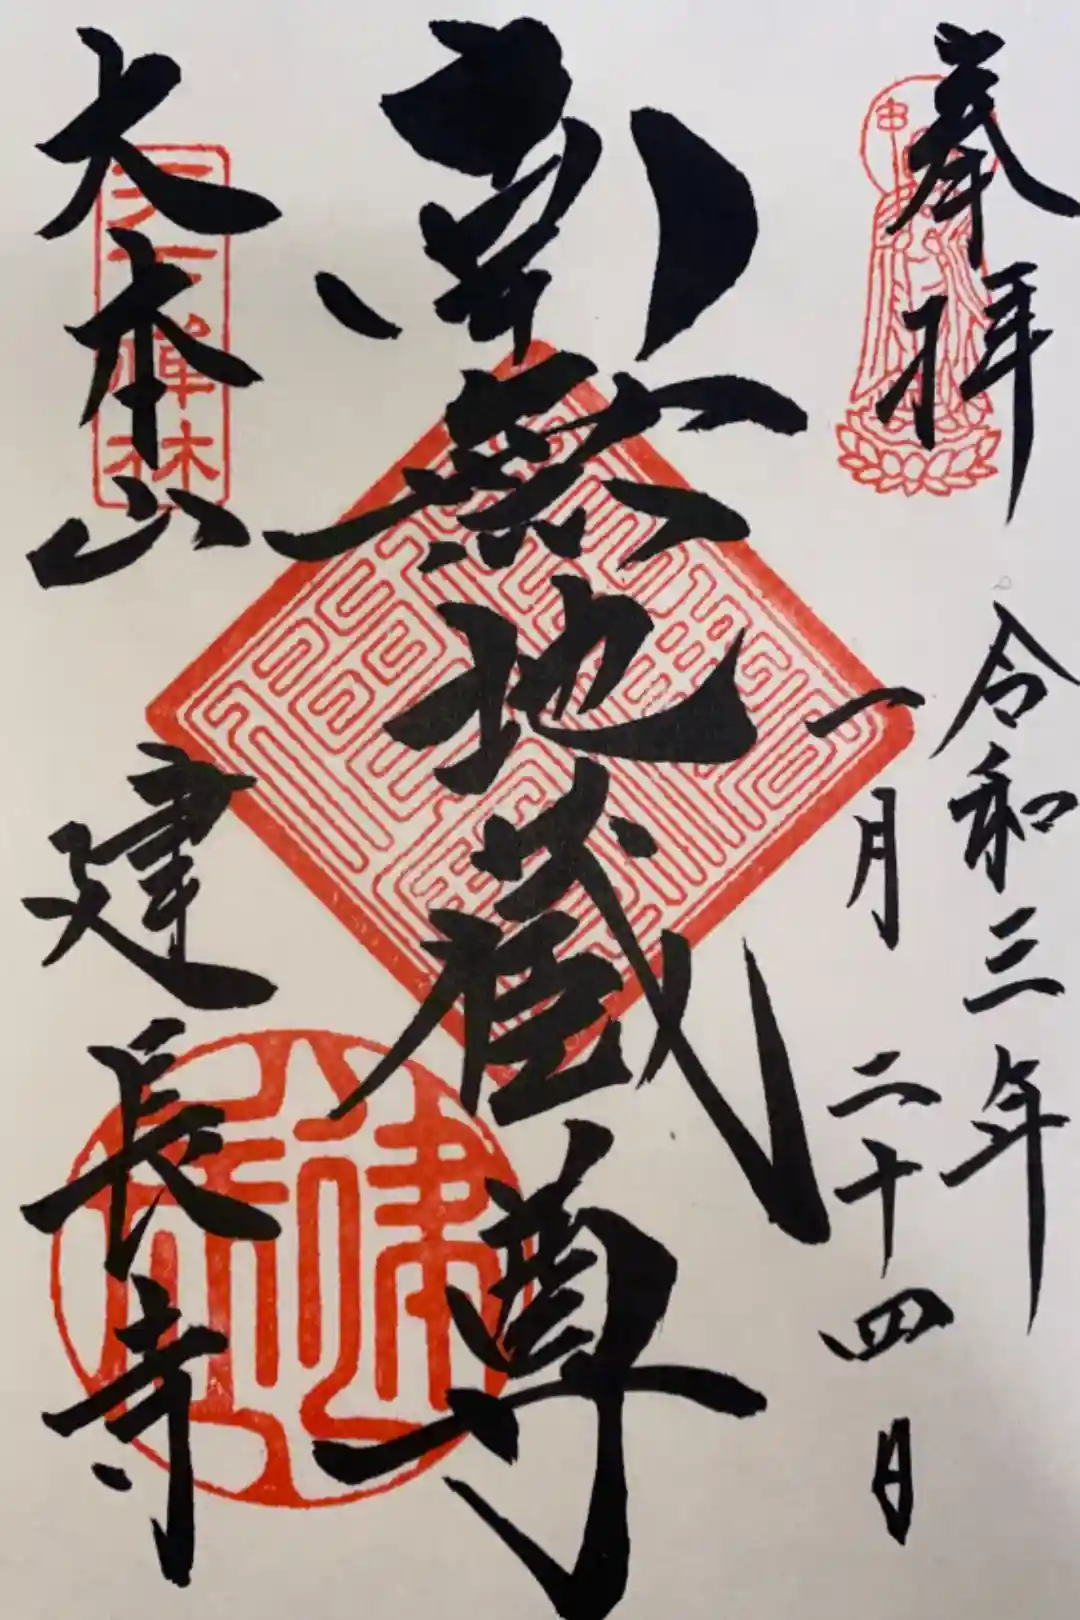 奉拝
令和三年
一月二十四日
南無地蔵尊
大本山
建長寺
天下禅林